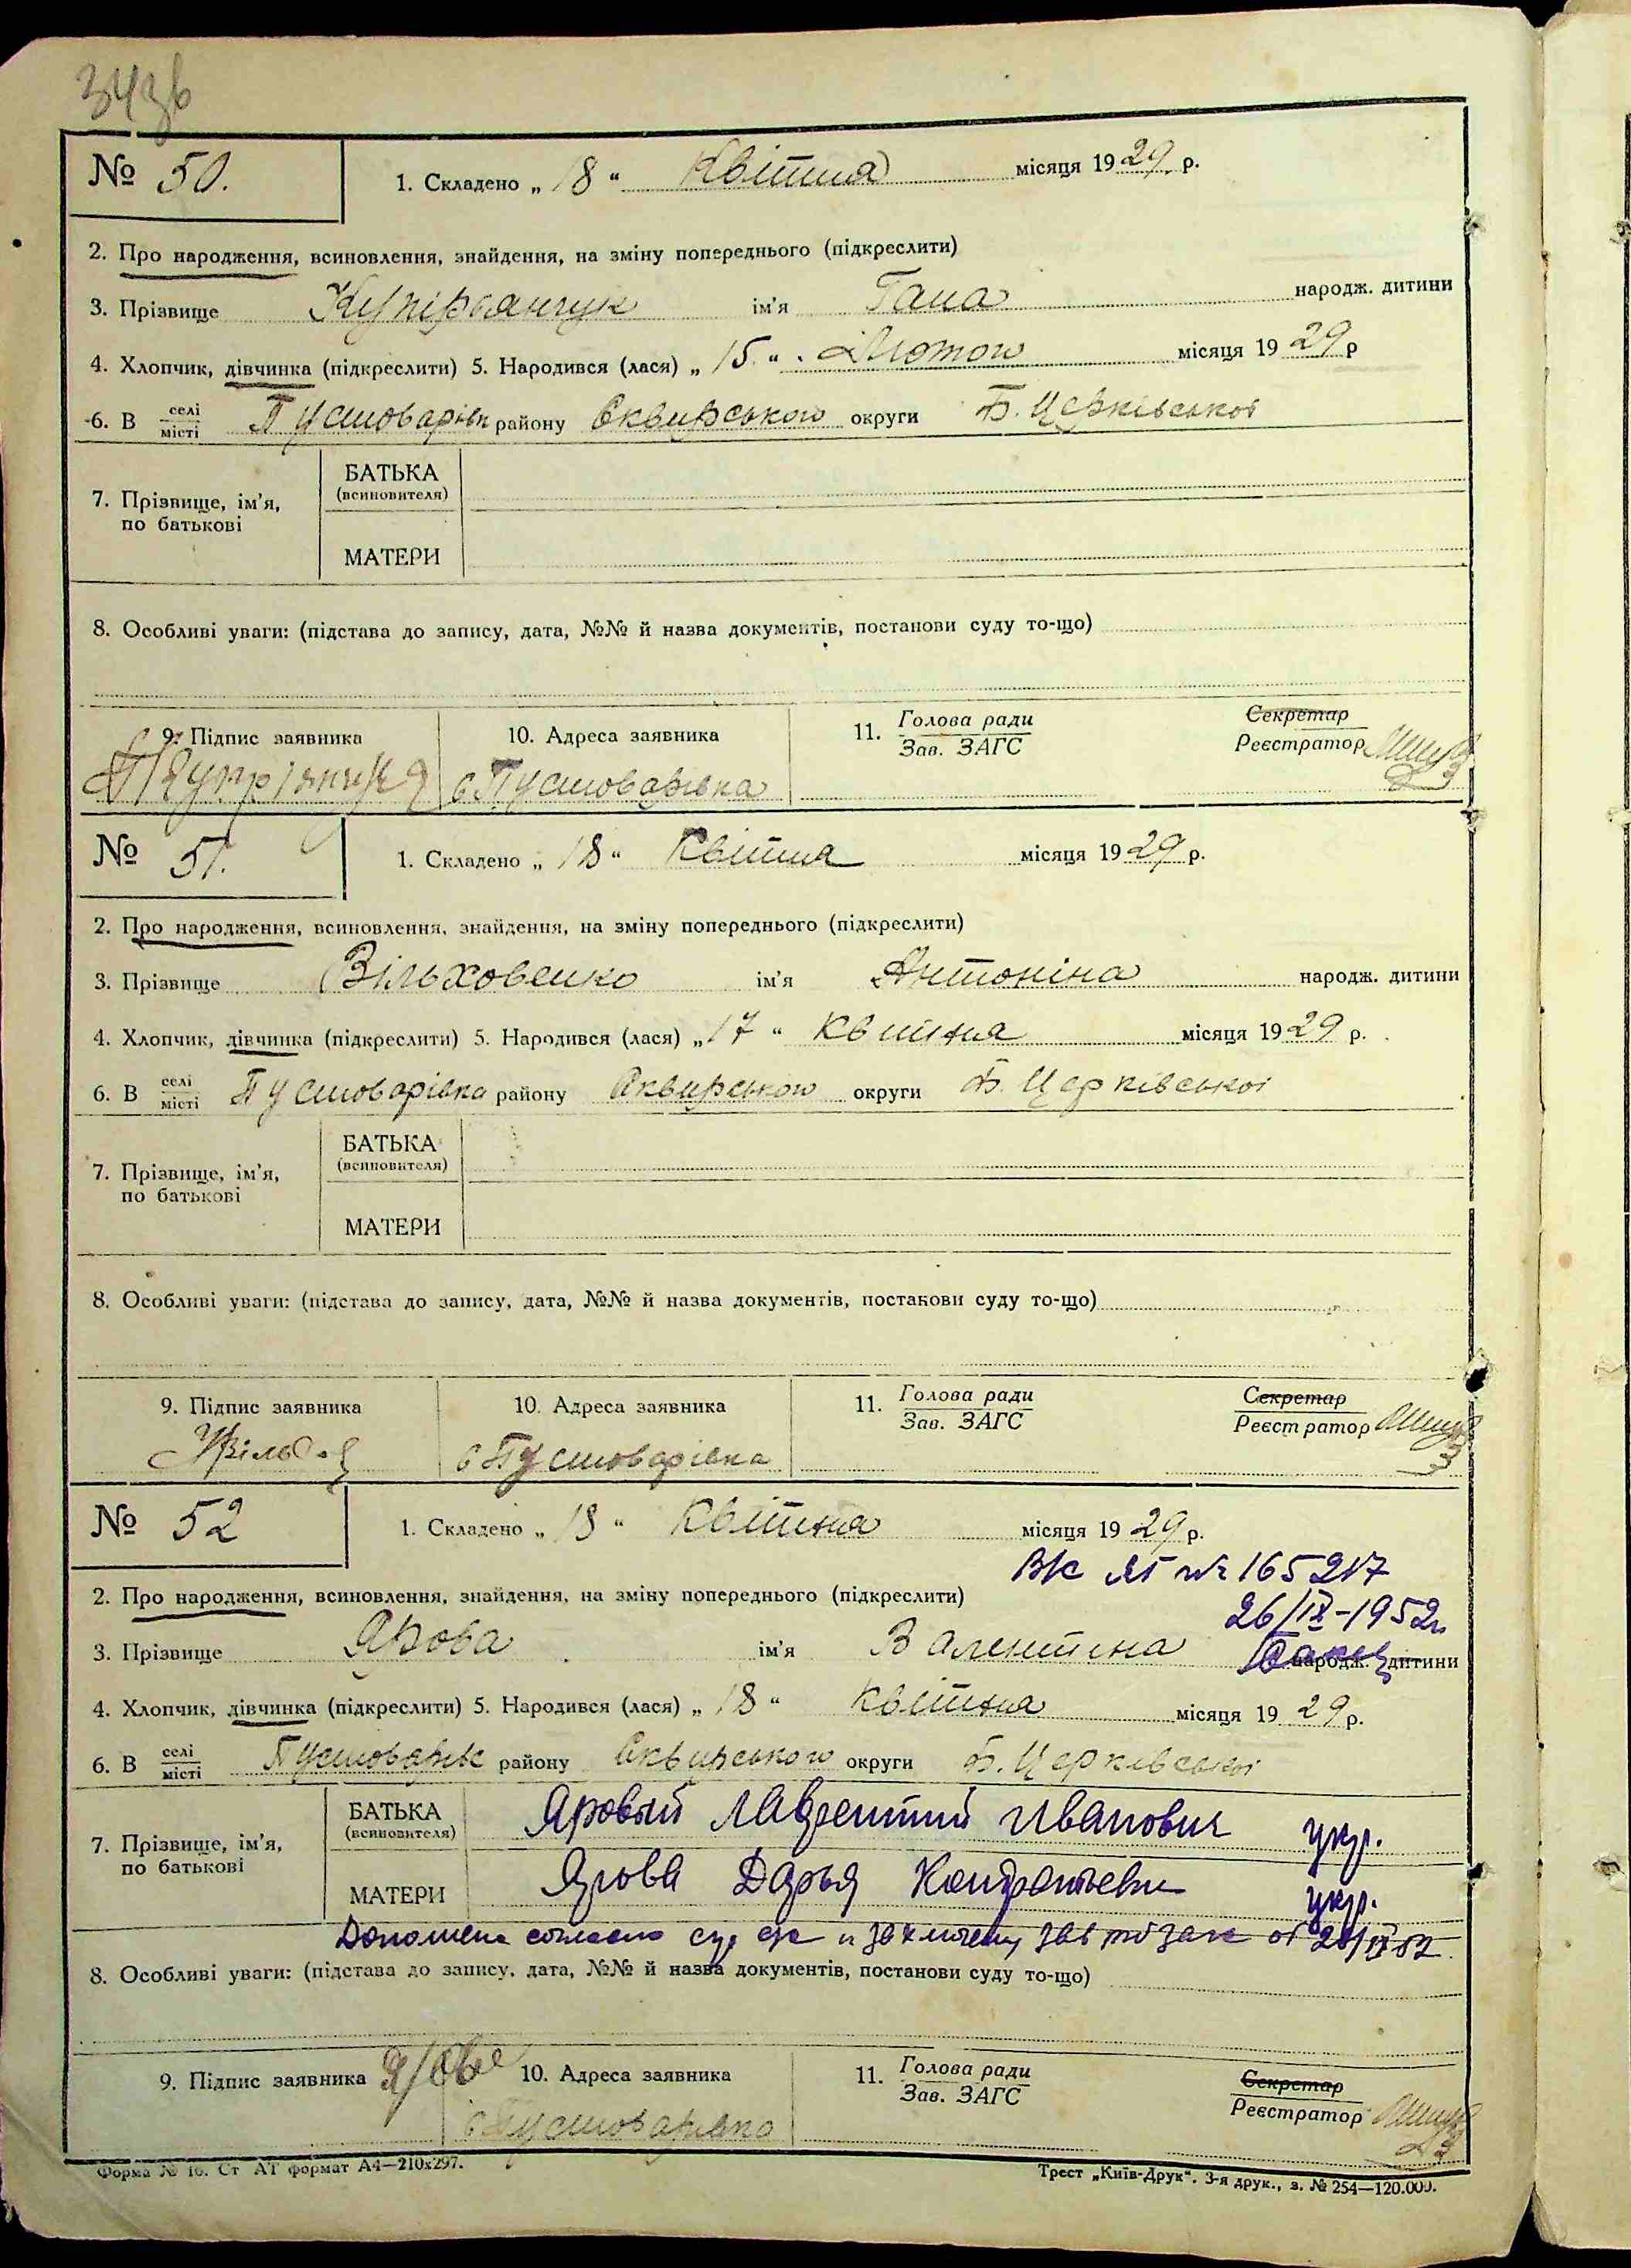 343б
№ 50.
1. Складено „ 18 “ Квітня місяця 1929 р.
2. Про народження, всиновлення, знайдення, на зміну попереднього (підкреслити)
3. Прізвище Купріянчук ім'я Гана народж. дитини
4. Хлопчик, дівчинка (підкреслити) 5. Народився (лася) „ 15 “ Лютого місяця 1929 р
6. В селі місті Пустоварівк району Сквирського округи Б. Церківської
7. Прізвище, ім'я, по батькові
БАТЬКА (всиновителя)
МАТЕРИ
8. Особливі уваги: (підстава до запису, дата, №№ й назва документів, постанови суду то-що)
9. Підпис заявника 10. Адреса заявника 11. Голова ради Зав. ЗАГС Секретар Реєстратор
с Пустоварівка
№ 51.
1. Складено „ 18 “ Квітня місяця 1929 р.
2. Про народження, всиновлення, знайдення, на зміну попереднього (підкреслити)
3. Прізвище Вільховенко ім'я Антоніна народж. дитини
4. Хлопчик, дівчинка (підкреслити) 5. Народився (лася) „ 17 “ Квітня місяця 1929 р.
6. В селі місті Пустоварівка району Сквирського округи Б. Церківської
7. Прізвище, ім'я, по батькові
БАТЬКА (всиновителя)
МАТЕРИ
8. Особливі уваги: (підстава до запису, дата, №№ й назва документів, постанови суду то-що)
9. Підпис заявника 10. Адреса заявника 11. Голова ради Зав. ЗАГС Секретар Реєстратор
с Пустоварівка
№ 52
1. Складено „ 18 “ Квітня місяця 1929 р.
№ 165217
2. Про народження, всиновлення, знайдення, на зміну попереднього (підкреслити)
26/IX-1952
3. Прізвище Ярова ім'я Валентина народж. дитини
4. Хлопчик, дівчинка (підкреслити) 5. Народився (лася) „ 18 “ Квітня місяця 1929 р.
6. В селі місті Пустоварівк району Сквирського округи Б. Церківської
7. Прізвище, ім'я, по батькові
БАТЬКА (всиновителя) Яровый Лаврентий Иванович укр.
МАТЕРИ Ярова Дарья Кондратьевн укр.
8. Особливі уваги: (підстава до запису, дата, №№ й назва документів, постанови суду то-що)
9. Підпис заявника Ярова 10. Адреса заявника 11. Голова ради Зав. ЗАГС Секретар Реєстратор
с Пустоварівка
Форма № 16. Ст АТ формат А4—210x297.
Трест „Київ-Друк“. 3-я друк., з. № 254—120.000.